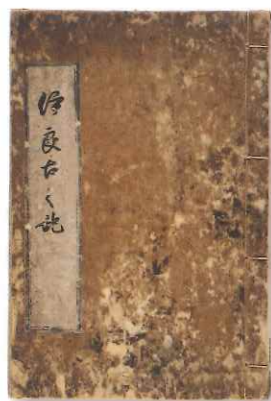 伊良古之記